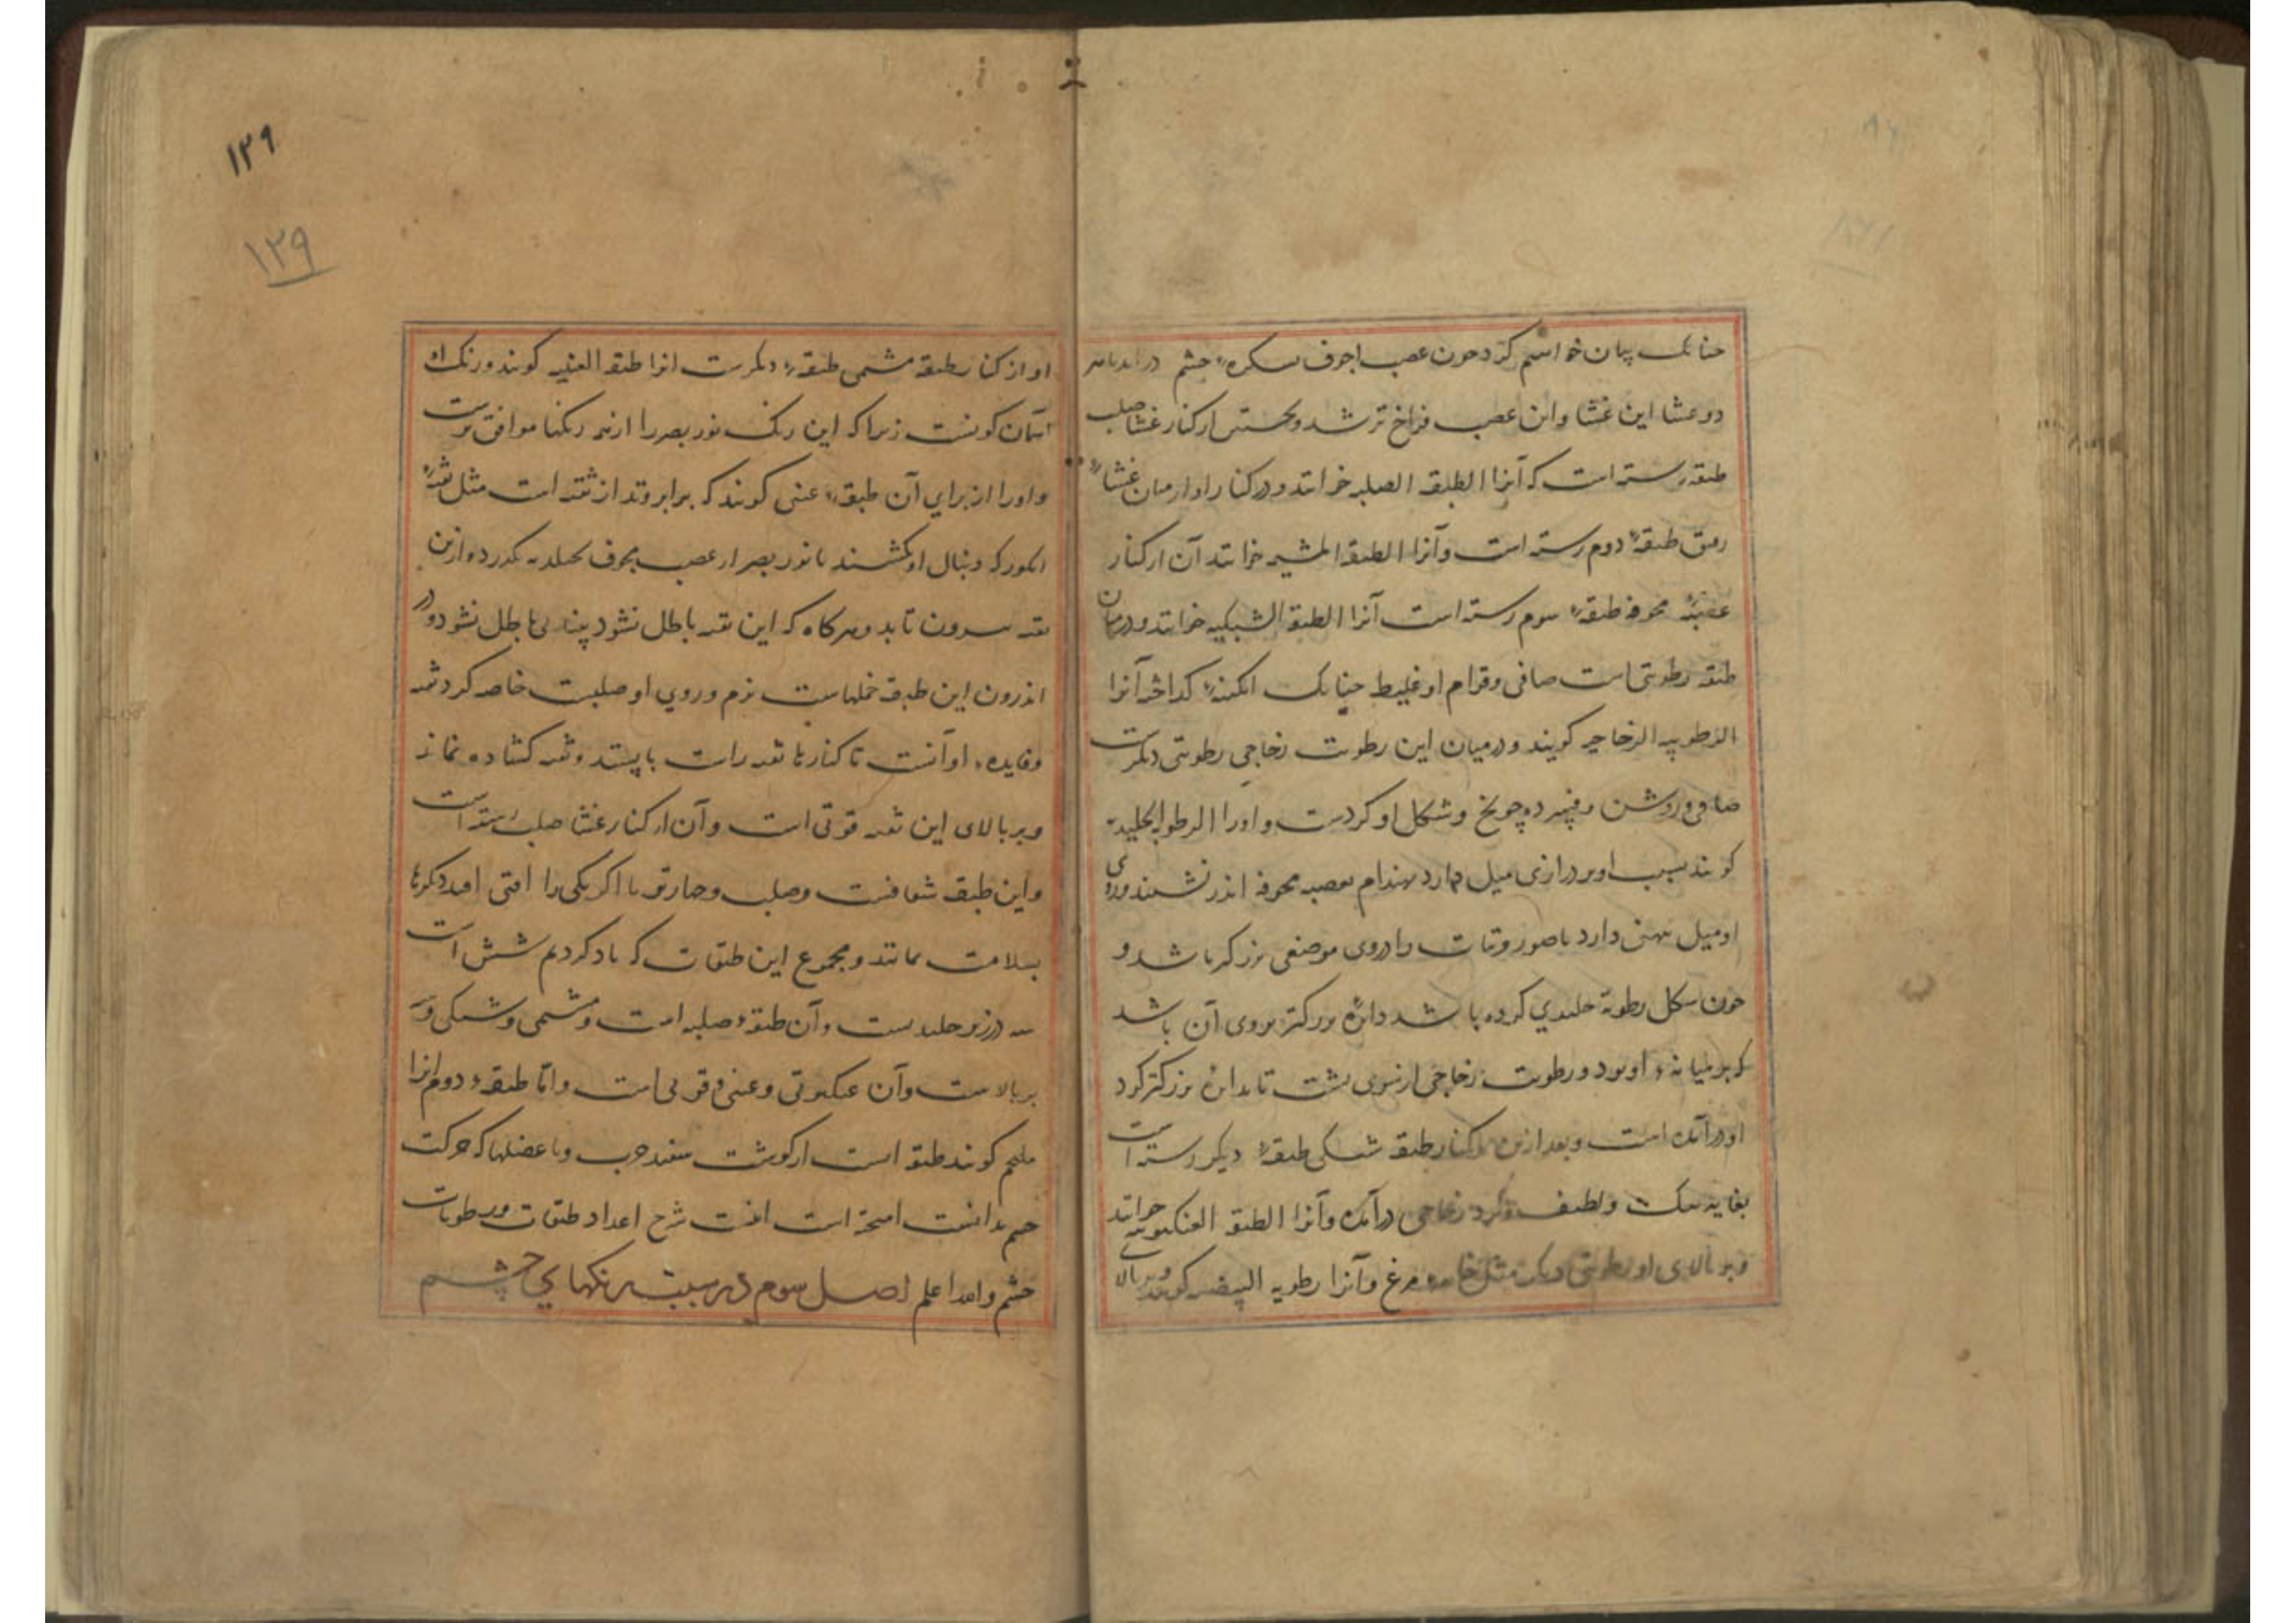 چنانک بیان خواهیم کرد چون عصب اجوف بسکره چشم درآید با هر
دو غشا این غشا و این عصب فراخ تر شد و نخستین از کنار غشا صلب
طبقه رسته است که آنرا الطبقه الصلبه خوانند و در کنار او از میان غشاء
رقیق طبقهٔ دوم رسته است و آنرا الطبقه المشیمیه خوانند آن از کنار
عصبهٔ مجوفه طبقهٔ سوم رسته است آنرا الطبقه الشبکیه خوانند و در میان
طبقه رطوبتی است صافی و قوام او غلیظ چنانک آبکینهٔ کداخته آنرا
الرطوبه الزجاجیه کویند و در میان این رطوبت زجاجی رطوبتی دیکرست
صافی و روشن و فسرده چو یخ و شکل او کردست و اورا الرطوبه الجلیدیه
کویند سبب او در درازی میل دارد بهندام بعصبه مجوفه اندر نشیند و روی
او میل بپهنی دارد تا صور و تات را در وی موضعی بزرکتر باشد و
چون شکل رطوبة جلیدی کرده باشد دایرهٔ بزرکتر بروی آن باشد
که بر میانهٔ او بود و رطوبت زجاجی از سوی پشت تا بدایرهٔ بزرکتر کرد
او درآمده است و بعد ازین از کنار طبقه شبکی طبقهٔ دیکر رسته است
بغایه تنک و لطیف و کرد زجاجی درآمده و آنرا الطبقه العنکبوتیه خوانند
و بر بالای او رطوبتی دیکر مثل خایه مرغ و آنرا رطوبه البیضیه کویند و بر بالای
۱۲۹
۱۲۹
او از کنار طبقه مشیمی طبقهٔ دیکرست انرا طبقه العنبیه کویند و رنک او
آسمان کونست زیرا که این رنک نور بصر را از همه رنکها موافق ترست
و اورا از برای آن طبقهٔ عنبی کویند که برابر وقد از ثقبه است مثل ثقبهٔ
انکور که دنبال او بکشند تا نور بصر از عصب مجوف بجلیدیه بکذرد و ازین
ثقبه بیرون تابد و هرکاه که این ثقبه باطل نشود بینایی باطل نشود و در
اندرون این طبقه خملهاست نرم و روی او صلبست خاصه کرد ثقبه
و فایدهٔ او آنست تا کنارها ثقبه راست بایستد و ثقبه کشاده نماند
و بر بالای این ثقبه قرنی است و آن از کنار غشا صلب رسته است
و این طبقه شفافست و صلب و چهار تو تا اکر یکی را افتی افتد دیکرها
بسلامت بمانند و مجموع این طبقات که یاد کردیم شش است
سه در زیر جلیدیست و آن طبقهٔ صلبه است و مشیمی و شبکی و سه
بر بالاست و آن عنکبوتی و عنبی و قرنی است و اما طبقهٔ دوم انرا
ملتحم کویند طبقه است از کوشت سفید چرب و با عضلها که حرکت
چشم بدانست امیخته است اینست شرح اعداد طبقات و رطوبات
چشم والله اعلم اصل سوم در سبب رنکهای چشم